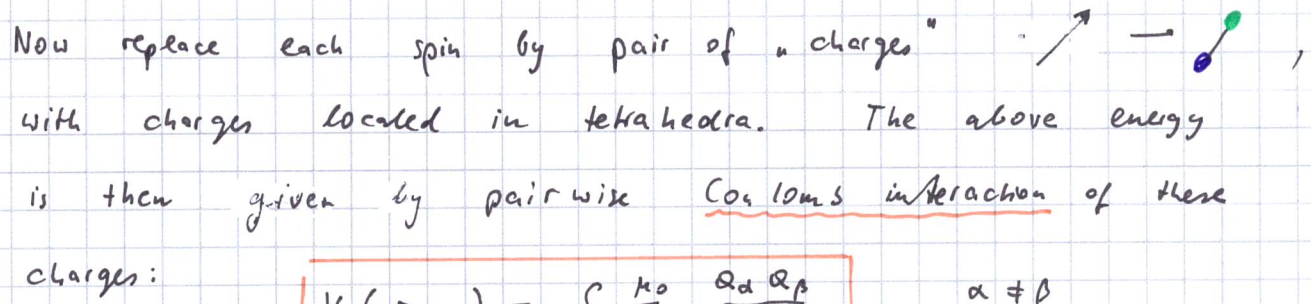 Now replace each spin by pair of „charges" → ,
with charges located in tetrahedra. The above energy
is then given by pairwise Coulomb interaction of these
charges: μ₀ Qα Qβ α ≠ β